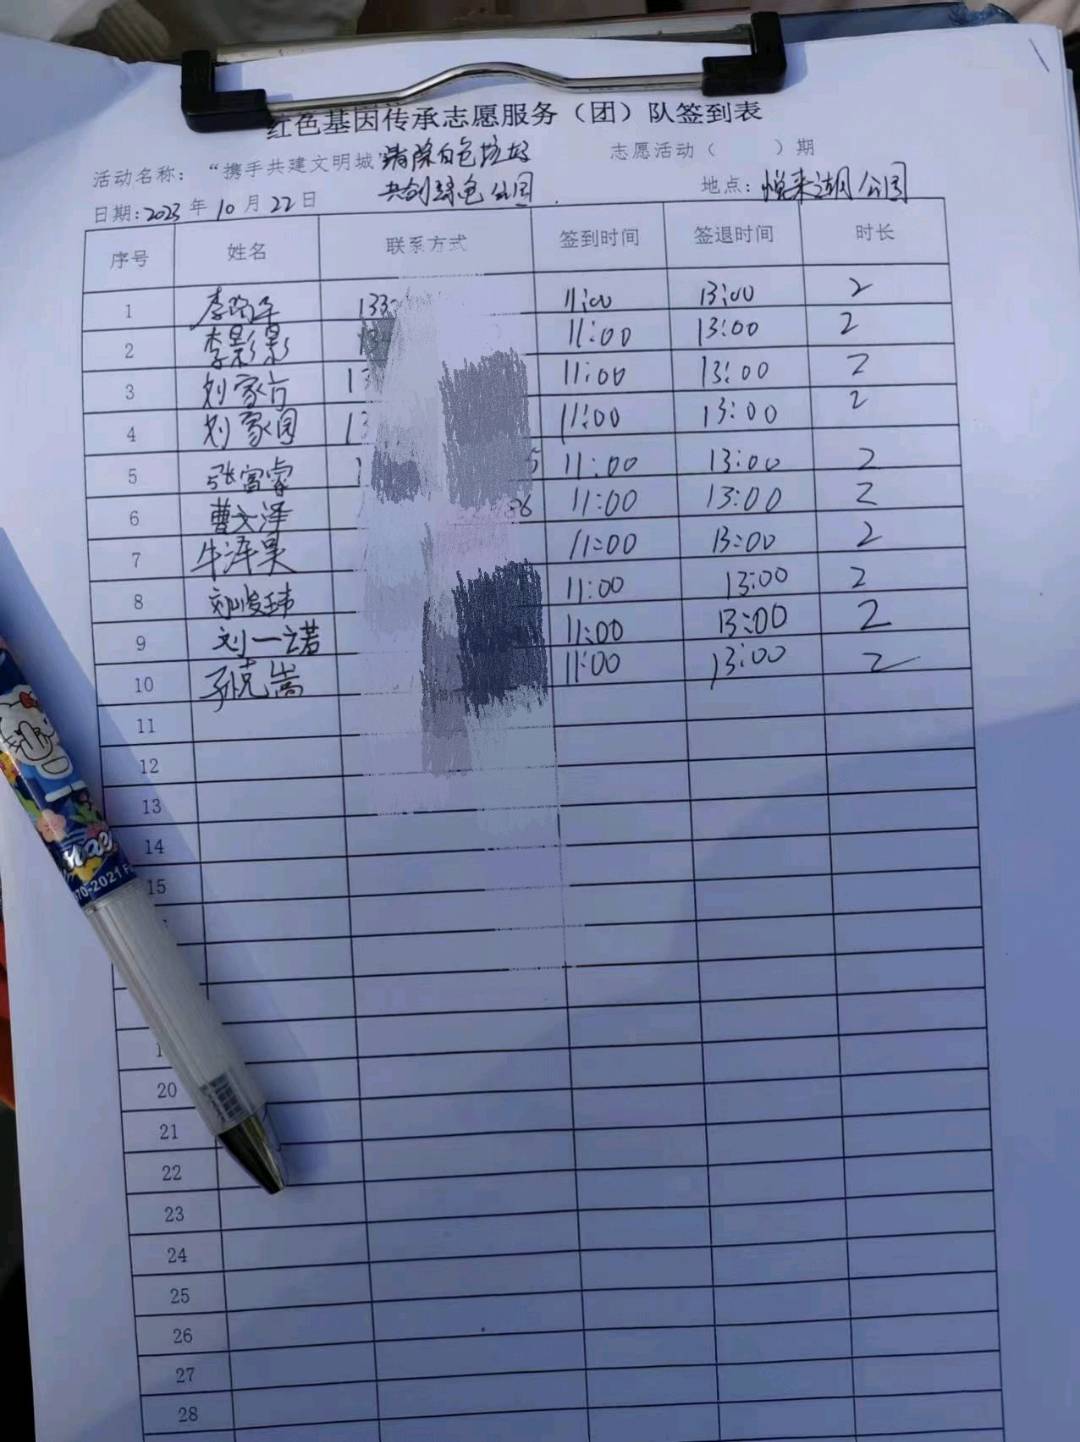 红色基因传承志愿服务（团）队签到表
活动名称：“携手共建文明城”清除白色垃圾 志愿活动（ ）期
共创绿色公园
日期:2023年10月22日 地点：悦来湖公园
序号 姓名 联系方式 签到时间 签退时间 时长
1 133 11:00 13:00 2
2 李影影 11:00 13:00 2
3 刘家方 13 11:00 13:00 2
4 刘家园 13 11:00 13:00 2
5 张富睿 1 5 11:00 13:00 2
6 曹文泽 36 11:00 13:00 2
7 牛泽昊 11:00 13:00 2
8 刘峻玮 11:00 13:00 2
9 刘一诺 11:00 13:00 2
10 孙克嵩 11:00 13:00 2
11
12
13
14
15
20
21
22
23
24
25
26
27
28
70-2021